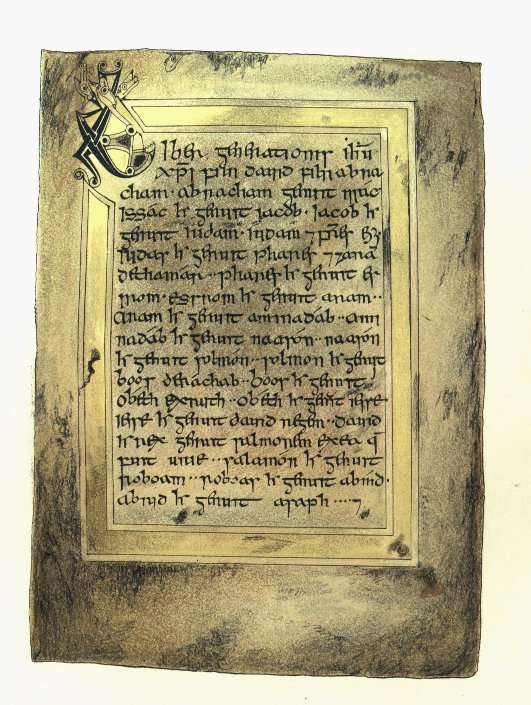 Liber generationis ihū
xpi filii david filii abra
cham · abracham genuit isac
issac hr genuit jacob · jacob hr
genuit iudam · iudam ⁊ frēs
iudas hr genuit phares ⁊ zarā
dethamar ·· phares hr genuit es
rom · esrrom hr genuit aram ··
aram hr genuit aminadab ·· ami
nadab hr genuit naasōn ·· naasōn
hr genuit solmon ·· solmon hr genuit
boos derachab ·· boos hr genuit
obeth exruth ·· obeth hr genuit iesse
iesse hr genuit david regem ·· david
hr rex genuit salmonem ex ea q
fuit urie ·· salamōn hr genuit
roboam ·· roboas hr genuit abiud ·
abiud hr genuit asaph ···· ⁊